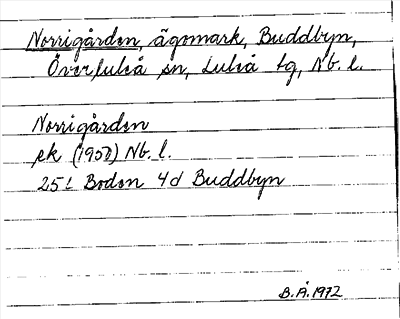 Norrigården, ägomark, Buddbyn,
Överluleå sn, Luleå tg, Nb. l.
Norrigården
ek (1950) Nb. l.
25 L Boden 4d Buddbyn
B.Å. 1972